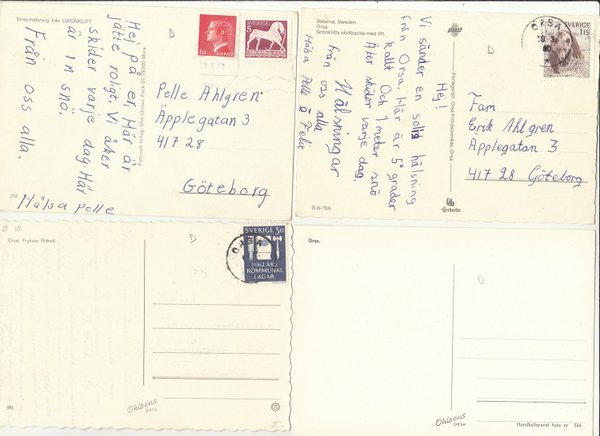 Vinterhälsning från GRÖNKLITT
Hej på er. Här är
jätte roligt. Vi åker
skider varje dag Här
är 1 m snö.
Från oss alla.
Hälsa pelle
D
SVERIGE
5
SVERIGE
Pelle Ahlgren
Äpplegatan 3
417 28
Göteborg
Dalarna, Sweden.
Orsa.
Grönklitts skidbacke med lift.
Hej!
Vi sänder en solig hälsning
från Orsa. Här är 5° grader
kallt Och 1 meter snö
Åker skider varje dag.
Hälsningar
från oss alla
Hälsa Pelle å Felix
D-6-78A
Grakarta
D
ORSA
80
SVERIGE 115
Fam
Erik Ahlgren
Äpplegatan 3
417 28 Göteborg
D W
Orsa.
D
ORSA
SVERIGE 30
1862 ÅRS
KOMMUNAL
LAGAR
Ohlsons
ORSA
5:-
Orsa.
D
Ohlsons
ORSA
Handkolorerat foto nr 544